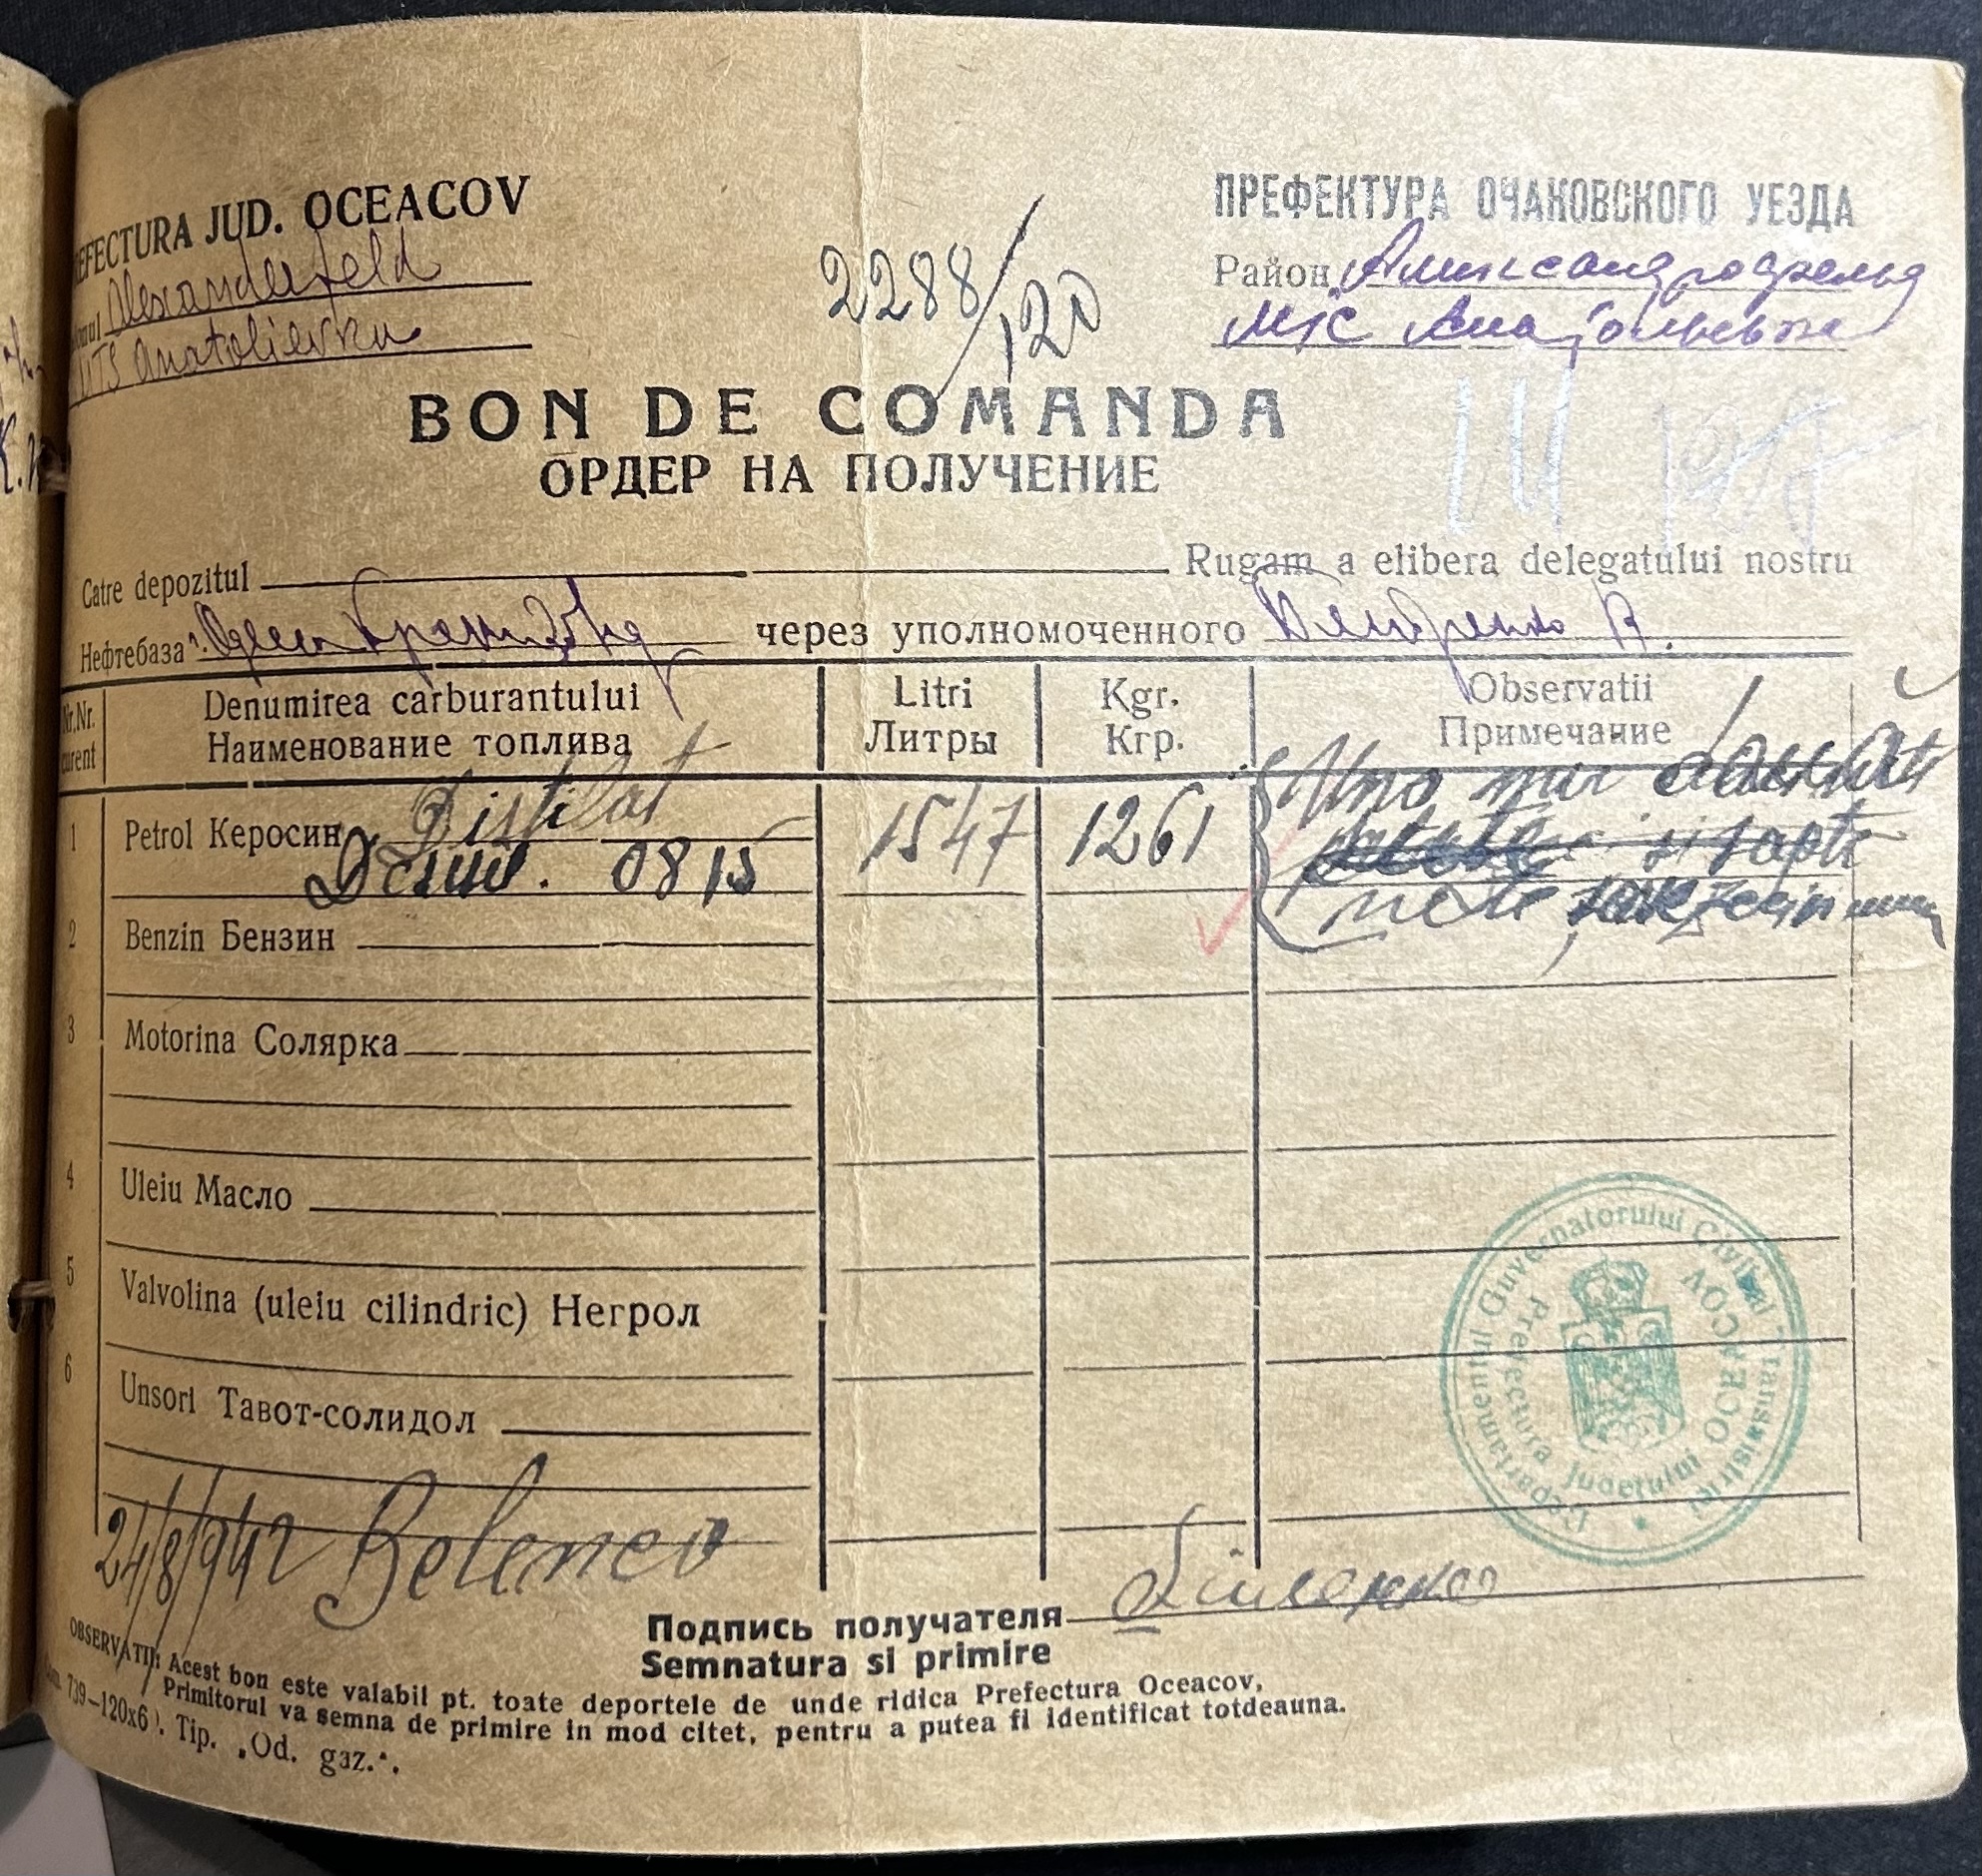 EFECTURA JUD. OCEACOV
ПРЕФЕКТУРА ОЧАКОВСКОГО УЕЗДА
onul Alexanderfeld
MTS Anatolievka
2288/120
Район Александрофельд
МТС Анатольевка
BON DE COMANDA
ОРДЕР НА ПОЛУЧЕНИЕ
Catre depozitul Rugam a elibera delegatului nostru
Нефтебаза через уполномоченного
Nr.Nr. curent
Denumirea carburantului
Наименование топлива
Litri
Литры
Kgr.
Кгр.
Observatii
Примечание
1 Petrol Керосин Distilat 1547 1261
0815
Una mii
si sapte
2 Benzin Бензин
3 Motorina Солярка
4 Uleiu Масло
5 Valvolina (uleiu cilindric) Негрол
6 Unsori Тавот-солидол
Departamentul Guvernatorului Civil al Transnistriei
Prefectura Judeţului OCEACOV
24/8/942 Belenco
Подпись получателя
Semnatura si primire
OBSERVATII: Acest bon este valabil pt. toate deportele de unde ridica Prefectura Oceacov,
Primitorul va semna de primire in mod citet, pentru a putea fi identificat totdeauna.
739—120x6 Tip. „Od. gaz.".